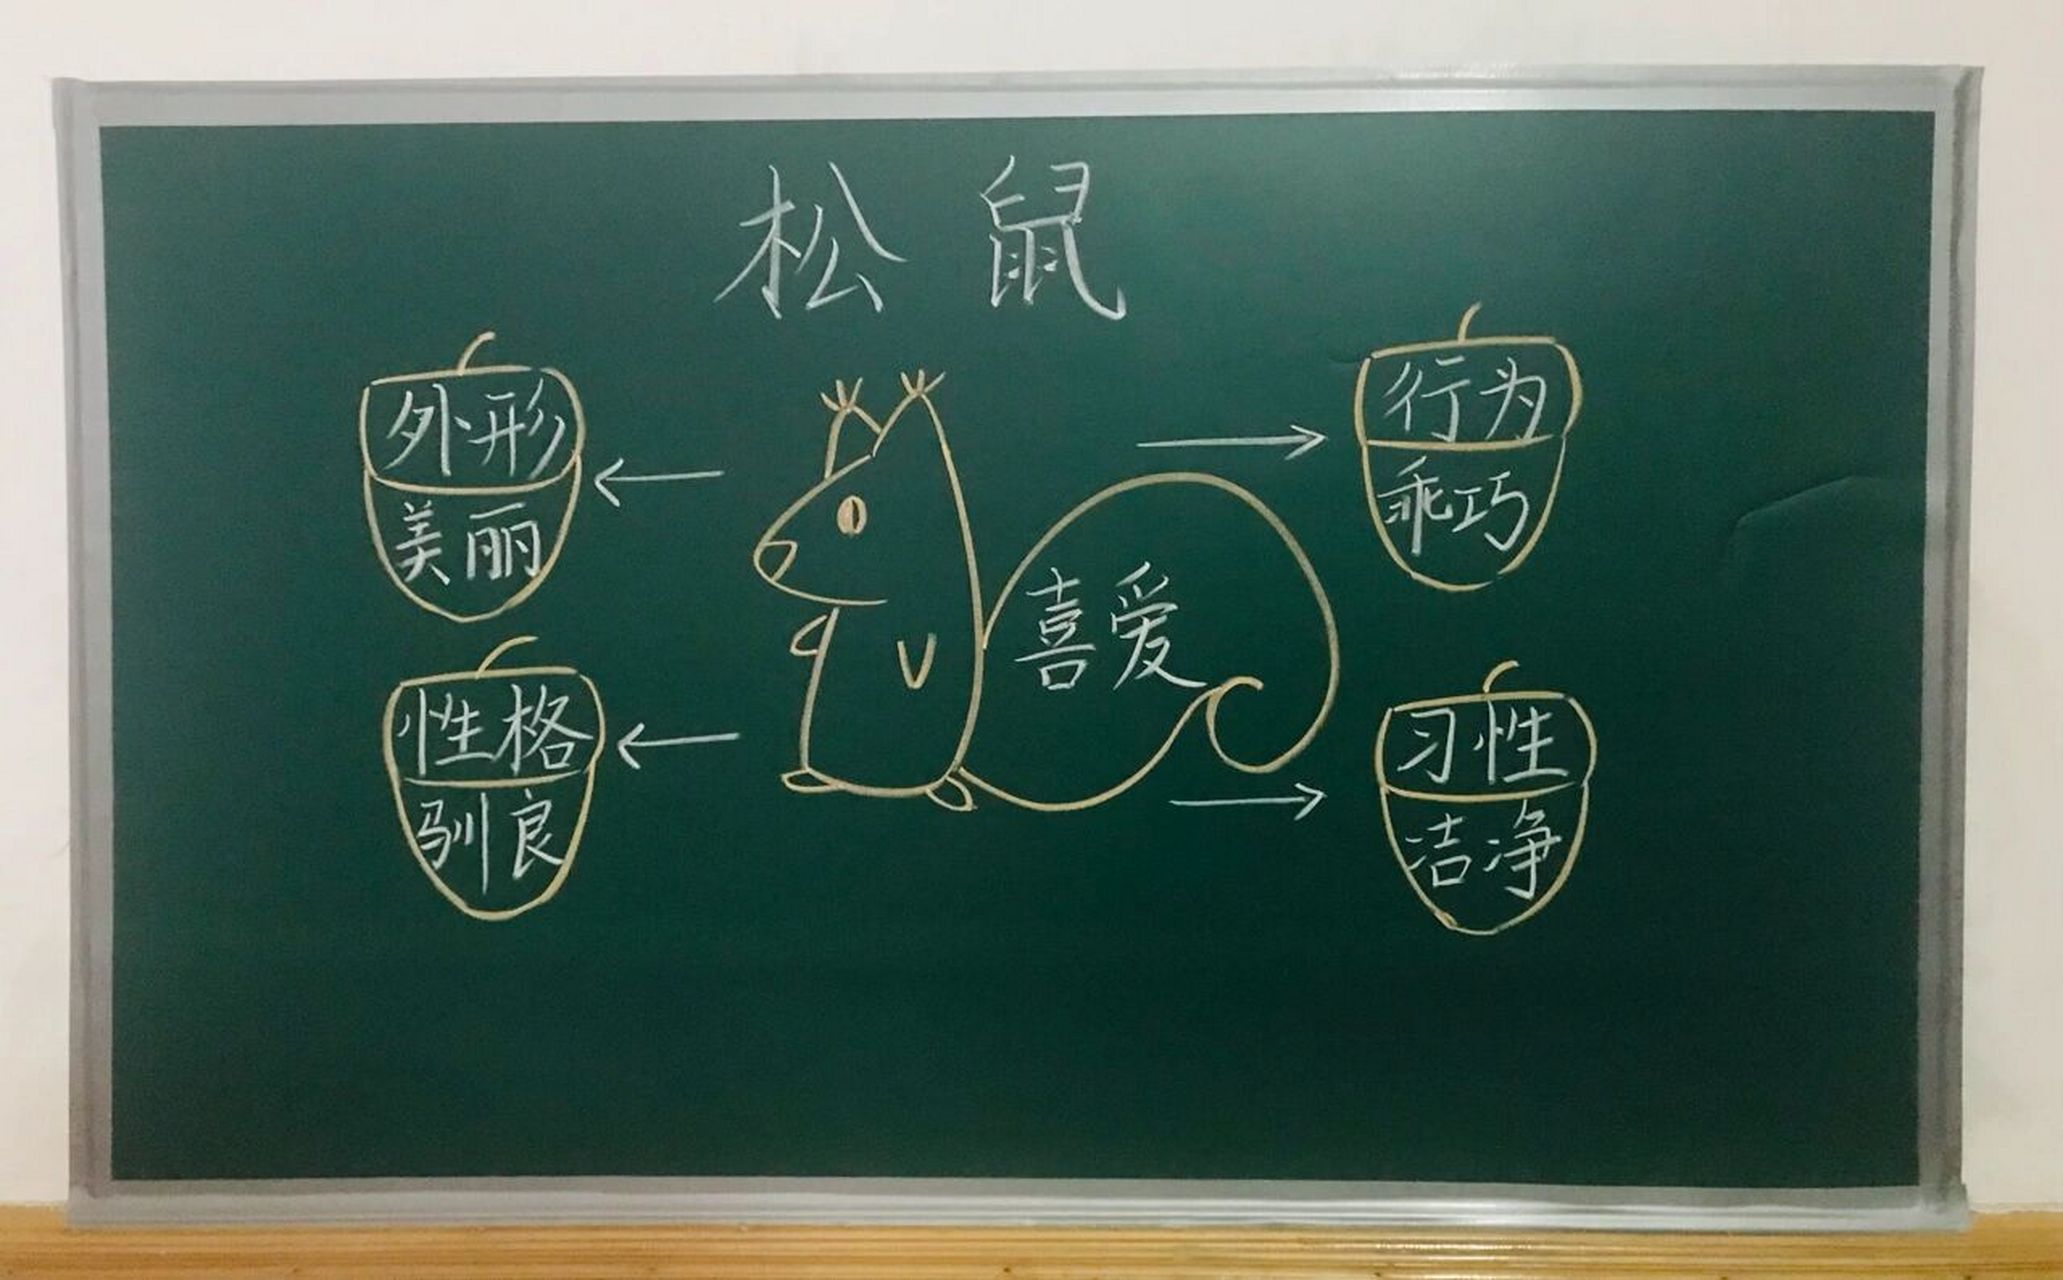 松鼠
外形
美丽
行为
乖巧
喜爱
性格
驯良
习性
洁净